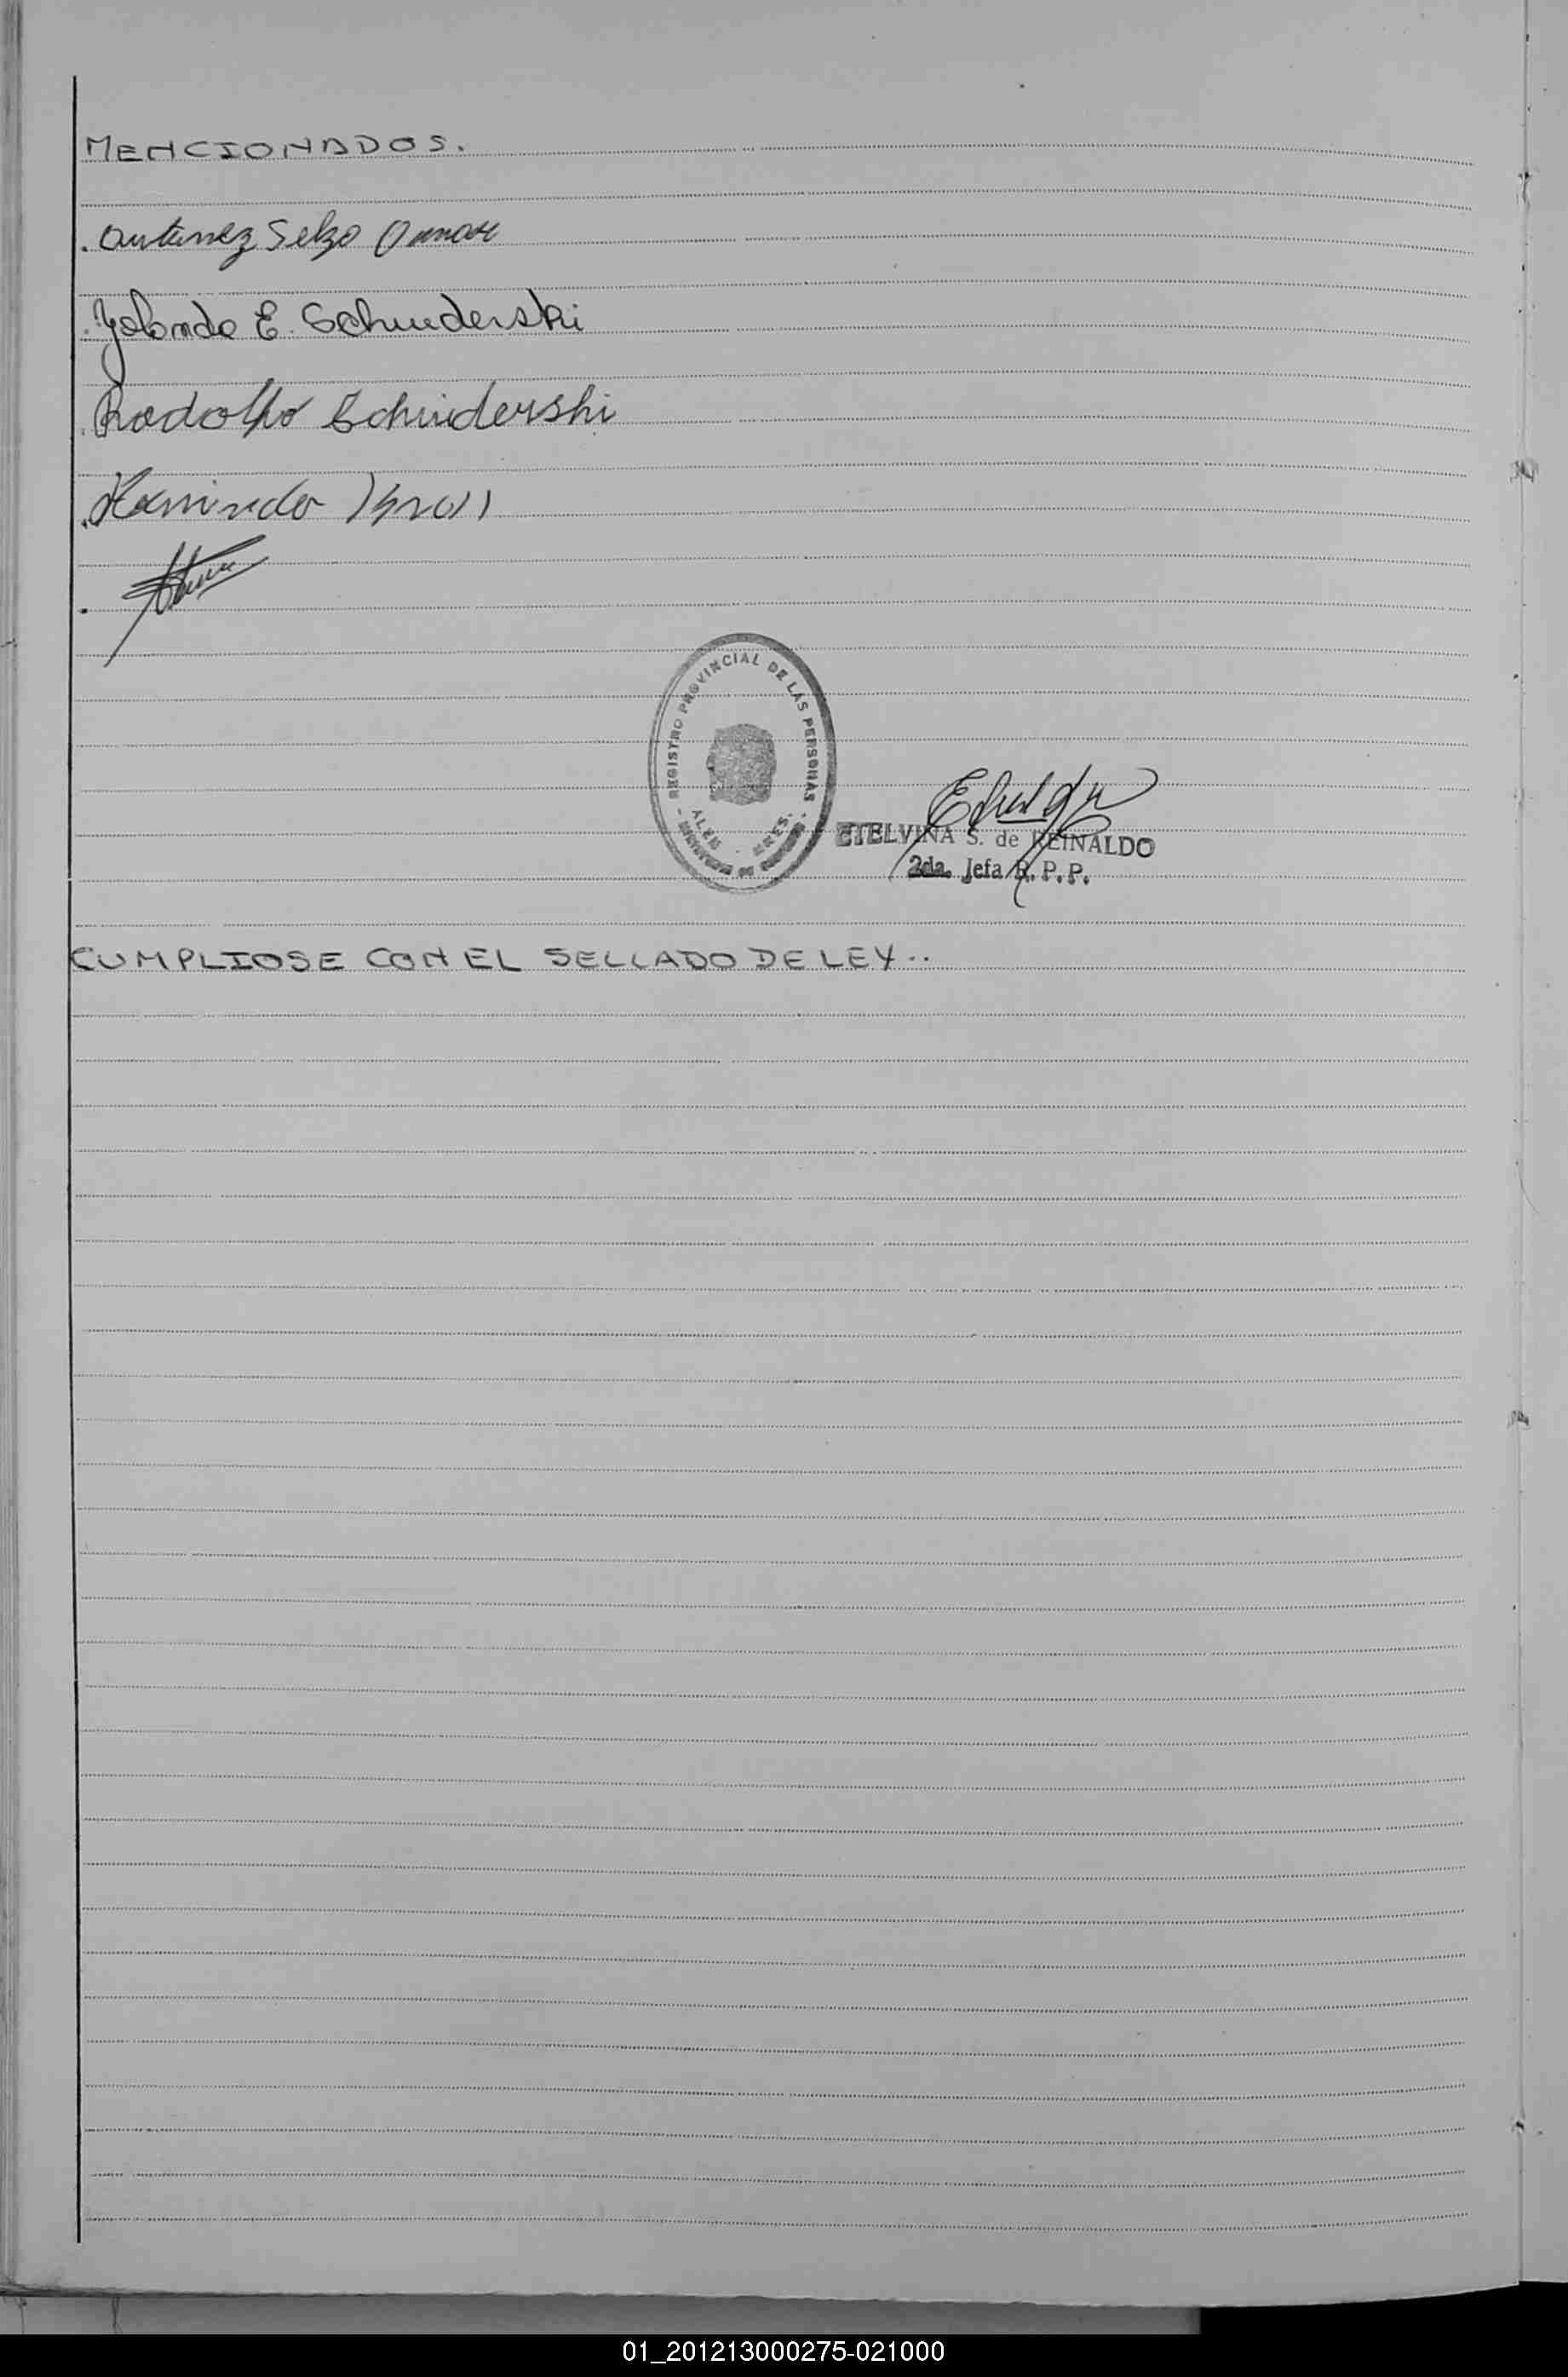 MENCIONADOS.
. Antunez Selzo Omar
. Yolanda E. Schuederski
. Rodolfo Schuiderski
.
.
REGISTRO PROVINCIAL DE LAS PERSONAS
ALEM - MNES.
ETELVINA S. de REINALDO
2da. Jefa R. P. P.
CUMPLIOSE CON EL SELLADO DE LEY..
01_201213000275-021000